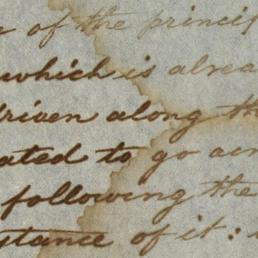 of the princip
which is alrea
driven along th
ated to go acr
following the
stance of it: